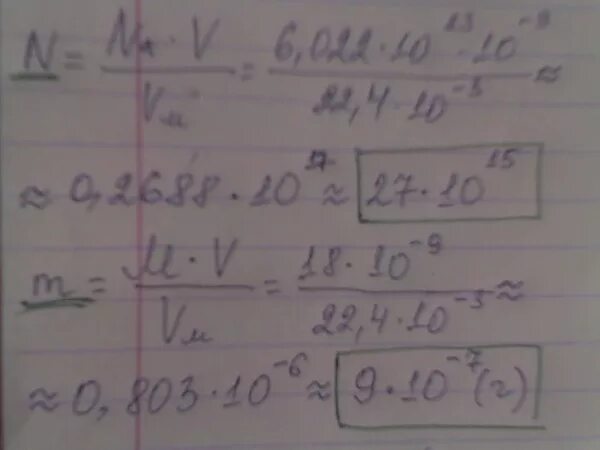 N = Nₐ · V / Vₘ = 6,022 · 10²³ · 10⁻⁹ / 22,4 · 10⁻³ ≈
≈ 0,2688 · 10¹⁷ ≈ 27 · 10¹⁵
m = M · V / Vₘ = 18 · 10⁻⁹ / 22,4 · 10⁻³ ≈
≈ 0,803 · 10⁻⁶ ≈ 9 · 10⁻⁷ (г)